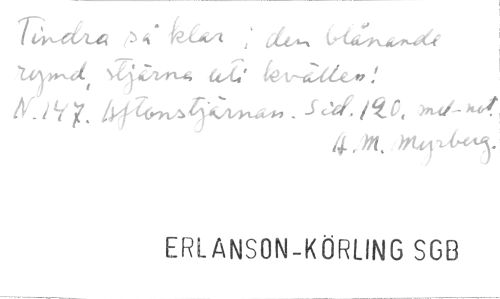 Tindra så klar i den blånande
rymd, stjärna uti kvällen!
N. 147. Aftonstjärnan. Sid. 120. mel-not.
A. M. Myrberg.
ERLANSON-KÖRLING SGB